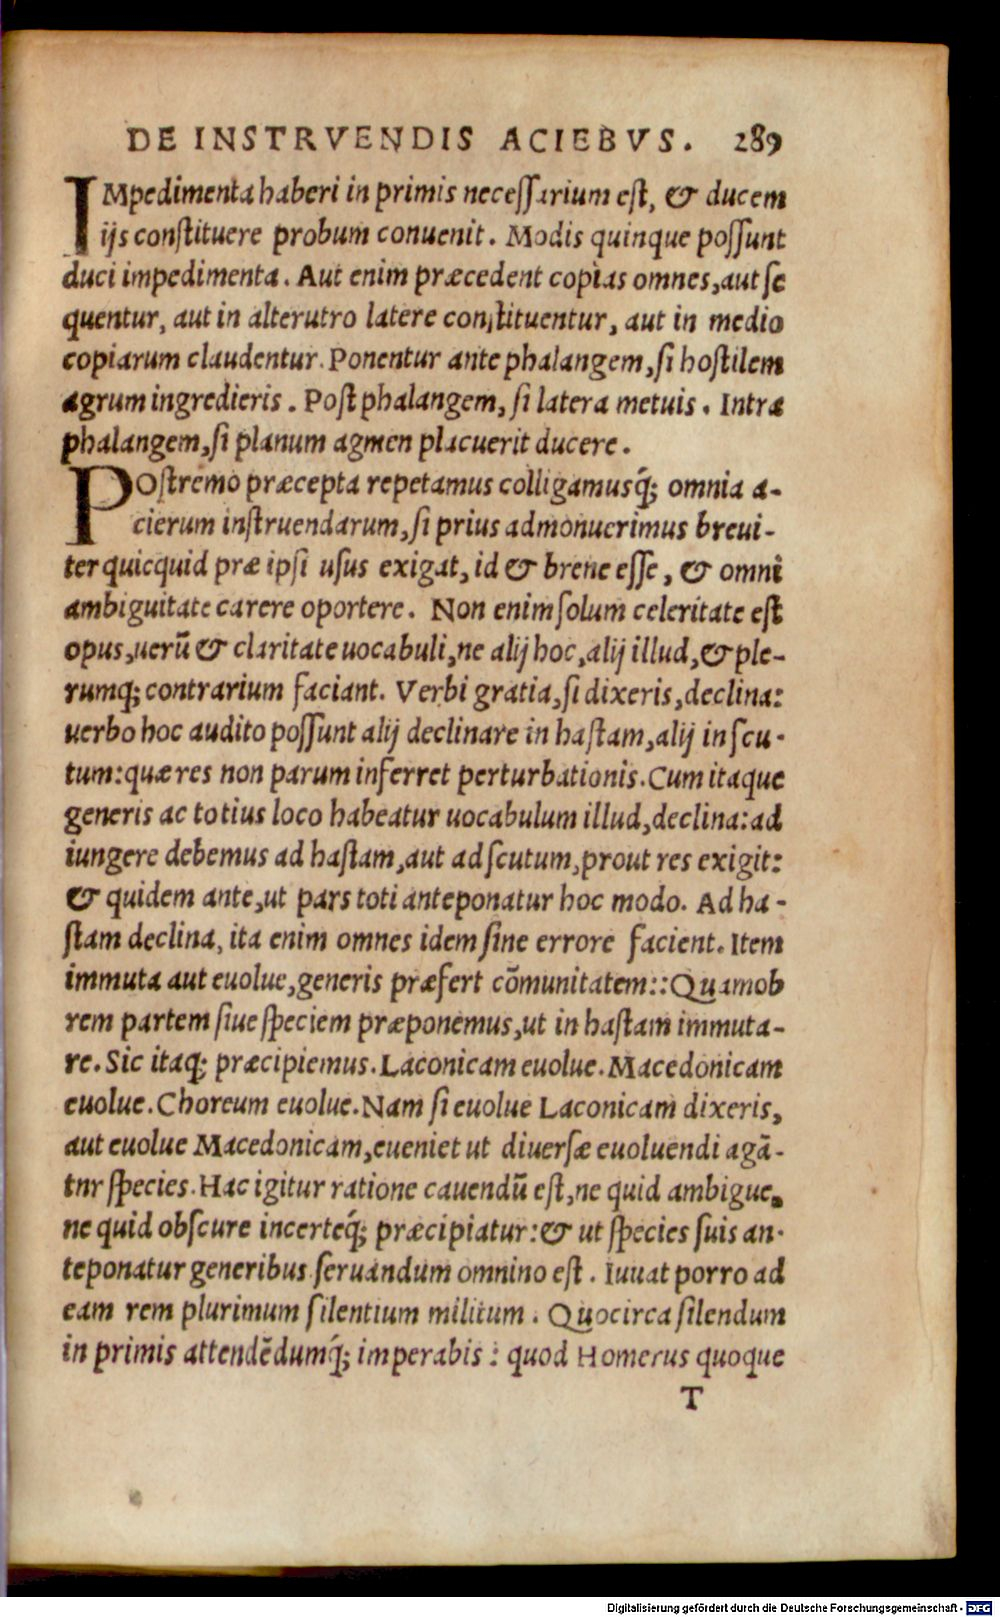 DE INSTRVENDIS ACIEBVS. 289
IMpedimenta haberi in primis necessarium est, & ducem
ijs constituere probum conuenit. Modis quinque possunt
duci impedimenta. Aut enim præcedent copias omnes, aut se
quentur, aut in alterutro latere constituentur, aut in medio
copiarum claudentur. Ponentur ante phalangem, si hostilem
agrum ingredieris. Post phalangem, si latera metuis. Intra
phalangem, si planum agmen placuerit ducere.
POstremo præcepta repetamus colligamusq́; omnia a-
cierum instruendarum, si prius admonuerimus breui-
ter quicquid præ ipsi usus exigat, id & breue esse, & omni
ambiguitate carere oportere. Non enim solum celeritate est
opus, uerū & claritate uocabuli, ne alij hoc, alij illud, & ple-
rumq; contrarium faciant. Verbi gratia, si dixeris, declina:
uerbo hoc audito possunt alij declinare in hastam, alij in scu-
tum: quæ res non parum inferret perturbationis. Cum itaque
generis ac totius loco habeatur uocabulum illud, declina: ad
iungere debemus ad hastam, aut ad scutum, prout res exigit:
& quidem ante, ut pars toti anteponatur hoc modo. Ad ha-
stam declina, ita enim omnes idem sine errore facient. Item
immuta aut euolue, generis præfert cōmunitatem:: Quamob
rem partem siue speciem præponemus, ut in hastam immuta-
re. Sic itaq; præcipiemus. Laconicam euolue. Macedonicam
euolue. Choreum euolue. Nam si euolue Laconicam dixeris,
aut euolue Macedonicam, eueniet ut diuersæ euoluendi agā-
tnr species. Hac igitur ratione cauendū est, ne quid ambigue,
ne quid obscure incerteq́; præcipiatur: & ut species suis an-
teponatur generibus seruandum omnino est. Iuuat porro ad
eam rem plurimum silentium militum. Quocirca silendum
in primis attendēdumq́; imperabis: quod Homerus quoque
T
Digitalisierung gefördert durch die Deutsche Forschungsgemeinschaft - DFG